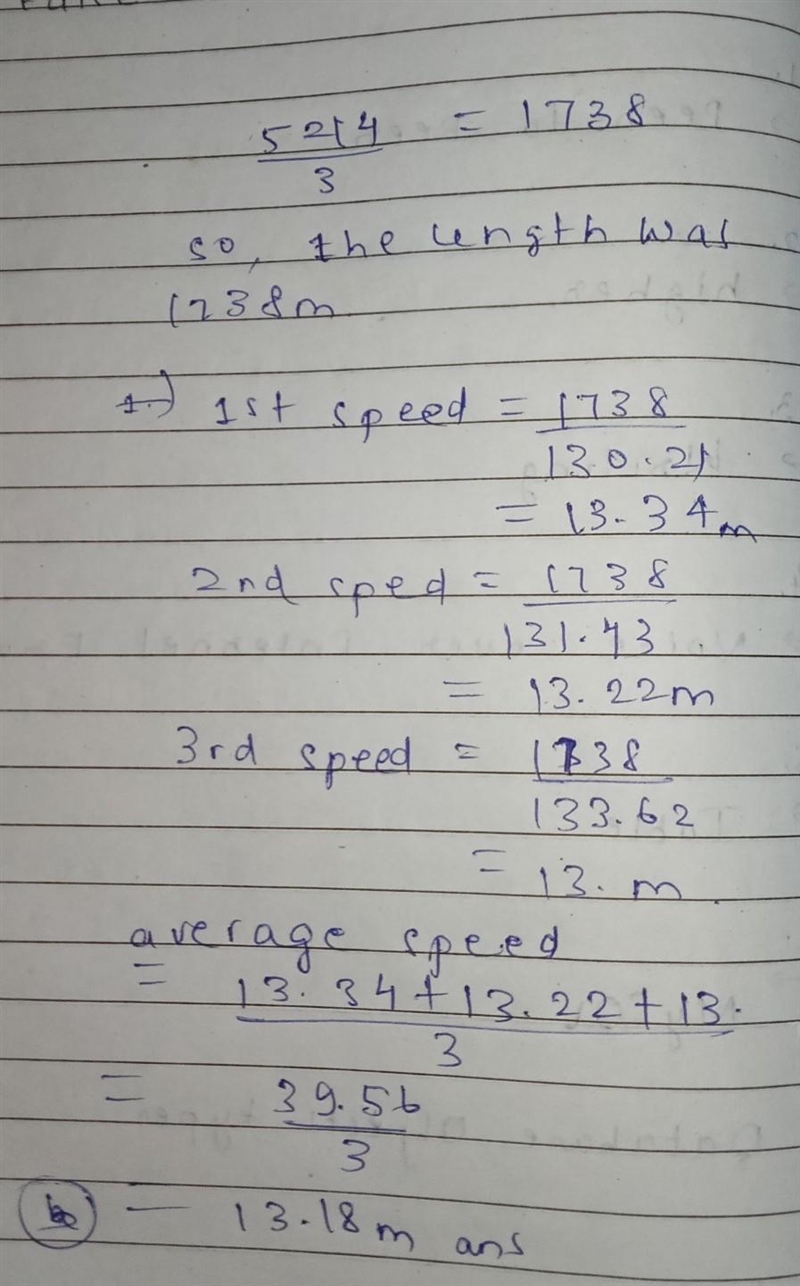 5214 = 1738
3
so, the length was
1738m
1.) 1st speed = 1738
130.21
= 13.34m
2nd sped = 1738
131.43
= 13.22m
3rd speed = 1738
133.62
= 13. m
average speed
= 13.34+13.22+13.
3
= 39.56
3
= 13.18m ans